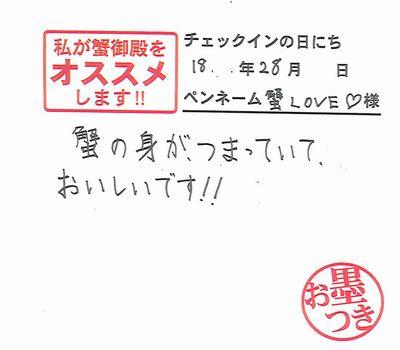 私が蟹御殿を
オススメ
します!!
チェックインの日にち
18. 年28月 日
ペンネーム 蟹LOVE♡様
蟹の身が、つまっていて、
おいしいです!!
お墨つき